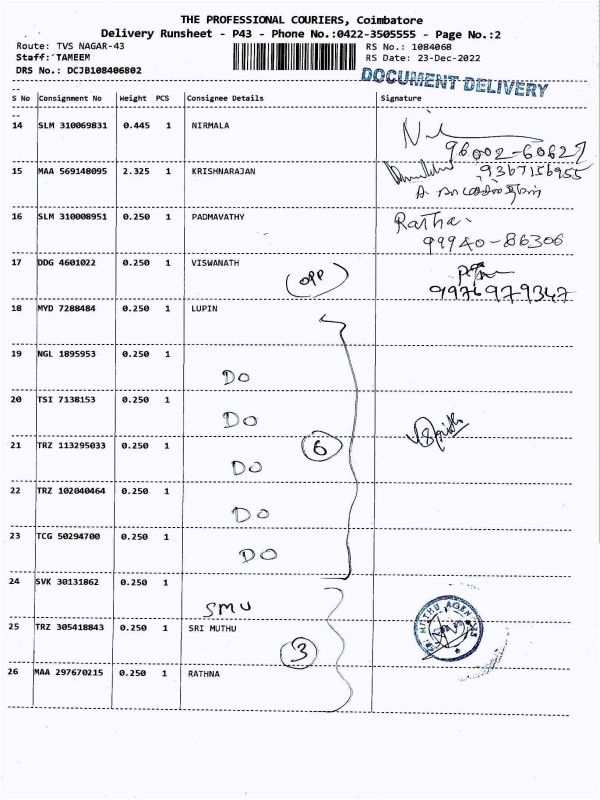 THE PROFESSIONAL COURIERS, Coimbatore
Delivery Runsheet - P43 - Phone No.:0422-3505555 - Page No.:2
Route: TVS NAGAR-43 RS No.: 1084068
Staff: TAMEEM RS Date: 23-Dec-2022
DRS No.: DCJB108406802
DOCUMENT DELIVERY
S No Consignment No Weight PCS Consignee Details Signature
14 SLM 310069831 0.445 1 NIRMALA
96002-60627
15 MAA 569148095 2.325 1 KRISHNARAJAN 9367156955
16 SLM 310008951 0.250 1 PADMAVATHY Ratha.
99940-86306
17 DDG 4601022 0.250 1 VISWANATH
(OPP) 9976979347
18 MYD 7288484 0.250 1 LUPIN
19 NGL 1895953 0.250 1
DO
20 TSI 7138153 0.250 1
DO
21 TRZ 113295033 0.250 1 6
DO
22 TRZ 102040464 0.250 1
DO
23 TCG 50294700 0.250 1
DO
24 SVK 30131862 0.250 1
SMU
25 TRZ 305418843 0.250 1 SRI MUTHU
3
26 MAA 297670215 0.250 1 RATHNA